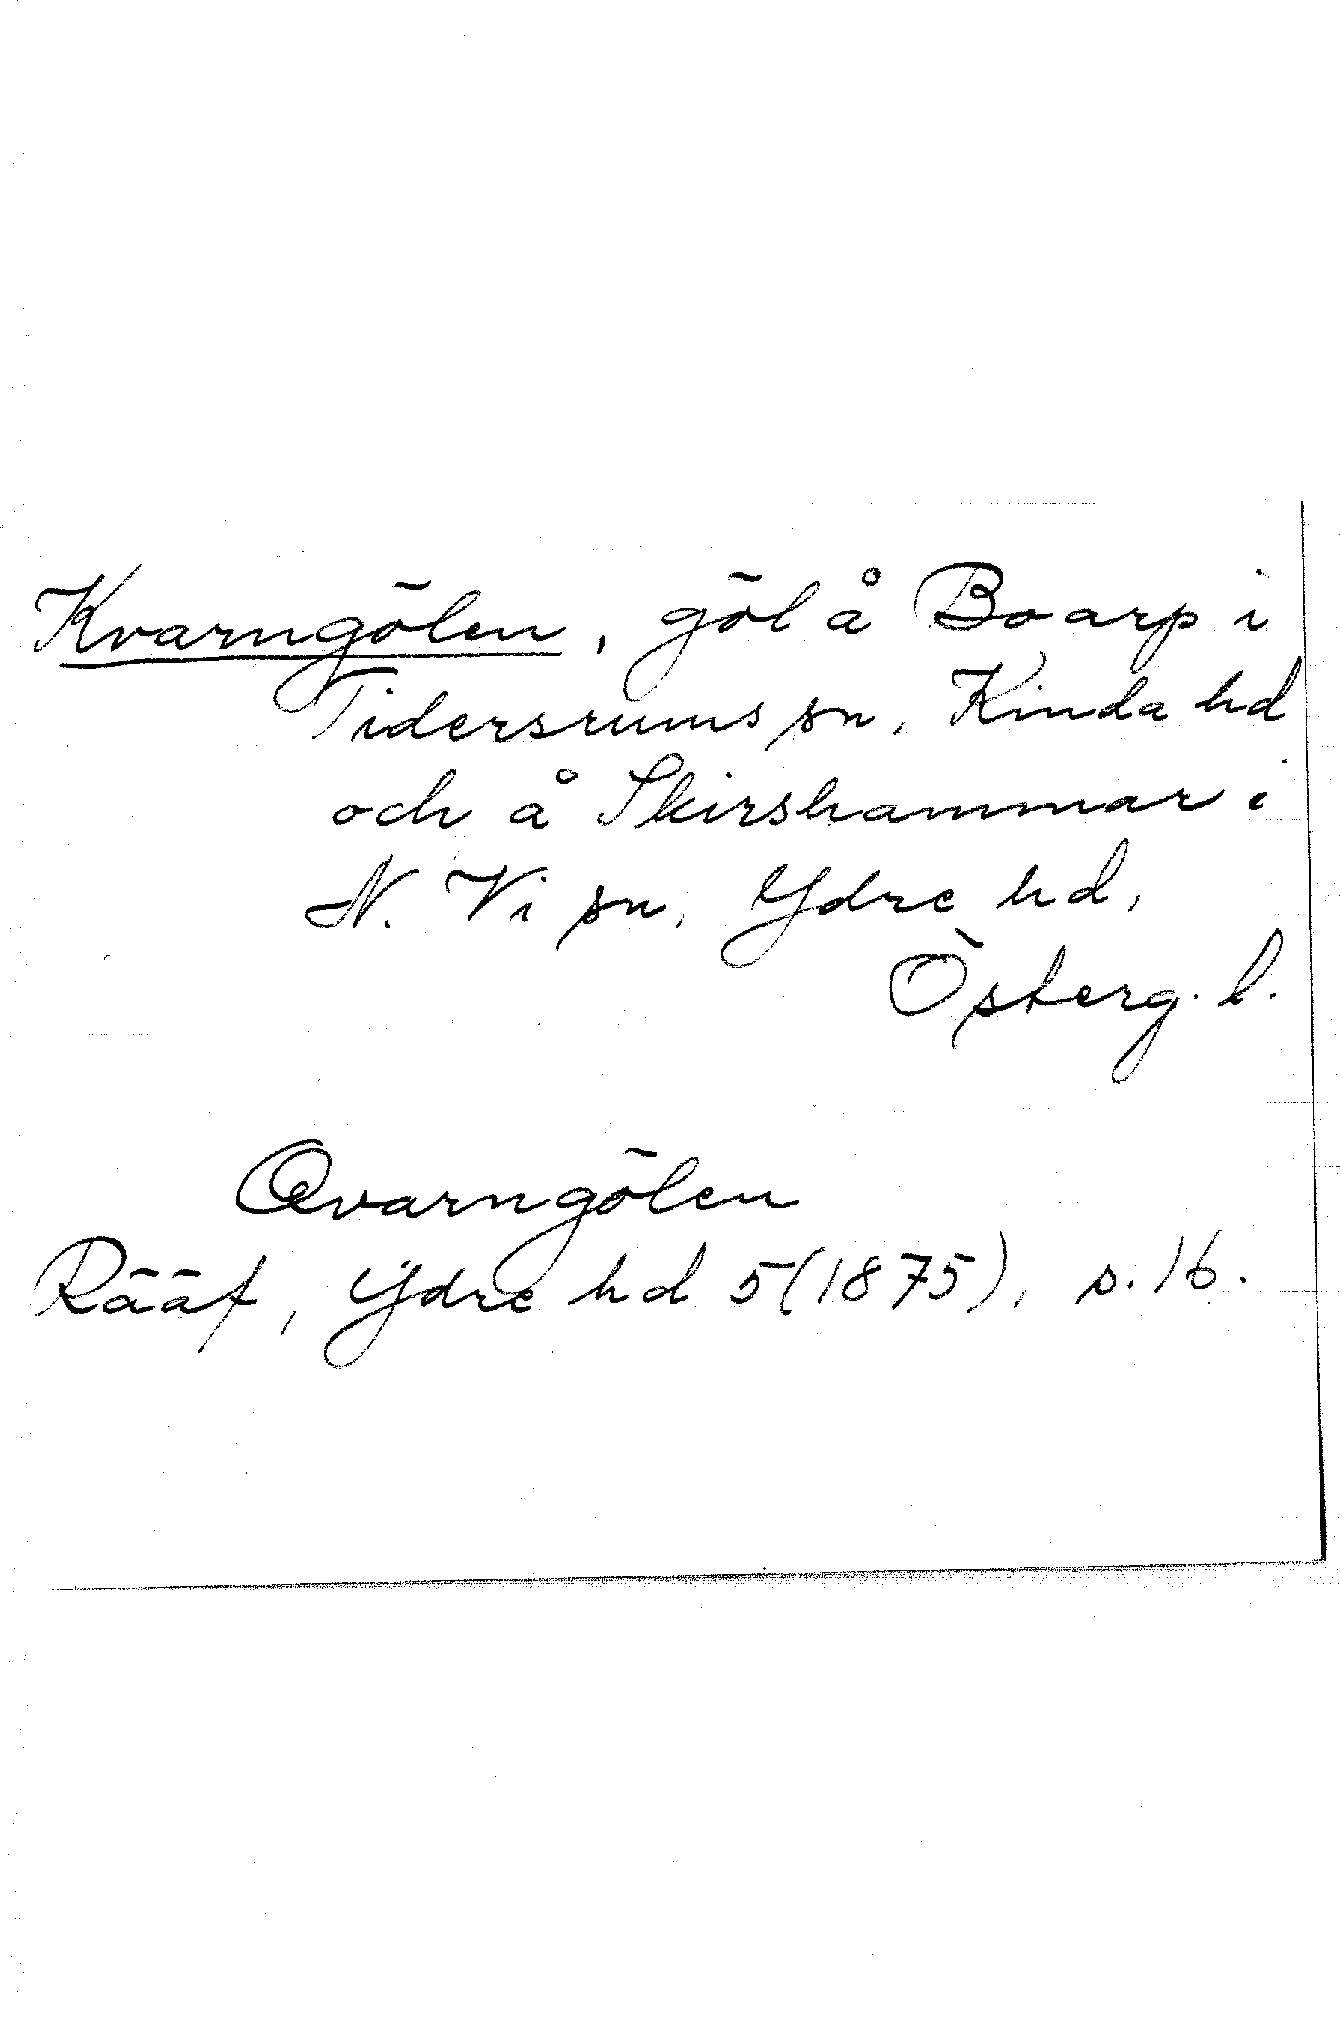 Kvarngölen, göl å Boarp i
Tidersrums sn, Kinda hd
och å Skirshammar i
N. Vi sn, Ydre hd,
Österg. l.
Qvarngölen
Rääf, Ydre hd 5 (1875), s. 16.